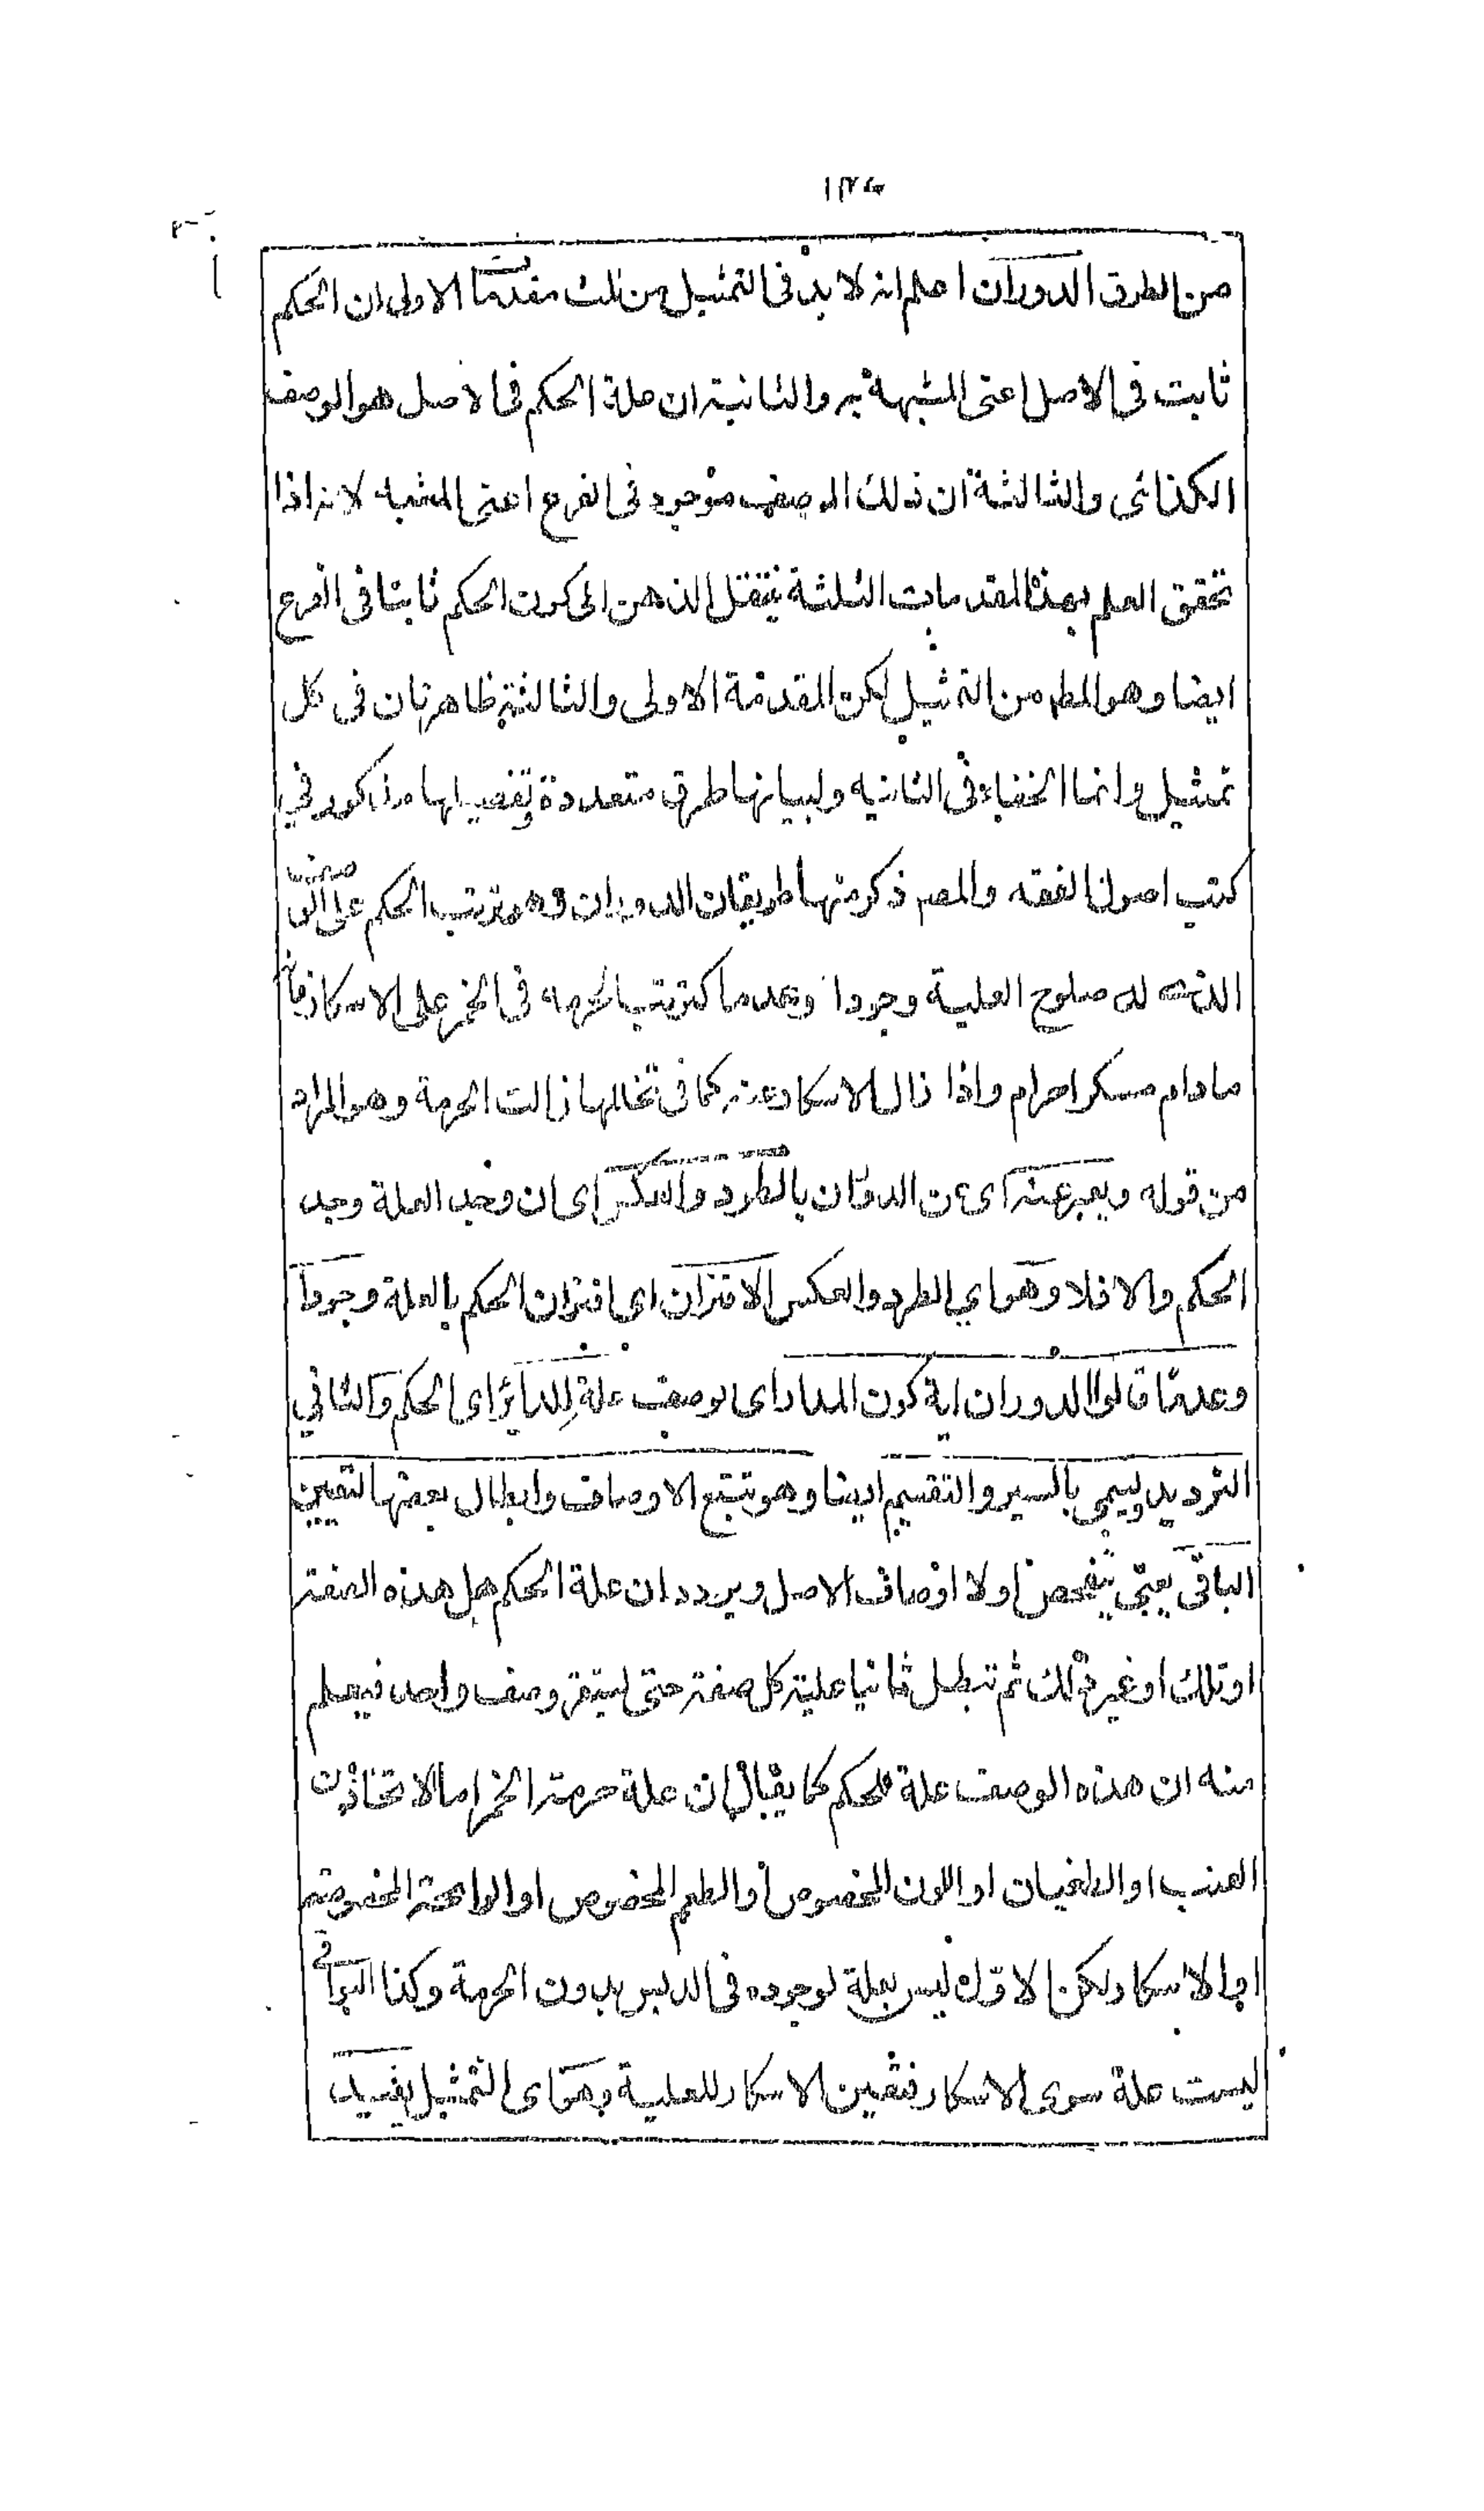 من الطرق الدوران اعلم انه لا بد فى التمثيل من ثلث مقدما الاولى ان الحكم
ثابت فى الاصل اعنى المشبهة به والثانية ان علة الحكم فى لاصل هو الوصف
الكذائى والثالثة ان ذلك الوصف موجود فى الفرع اعنى المشبه لانه اذا
تحقق العلم بهذه المقدمات الثلثة ينتقل الذهن الى كون الحكم ثابتا فى الفرع
ايضا وهو المط من التمثيل لكن المقدمة الاولى والثالثة ظاهرتان فى كل
تمثيل وانما الخفاء فى الثانيه ولبيانها طرق متعددة تفصيلها مذكور في
كتب اصول الفقه والمصـ ذكر منها طريقان الدوران وهو ترتب الحكم على الوصف
الذى له صلوح العلية وجودا وعدما كترتب الحرمه فى الخمر على الاسكار فانه
ما دام مسكرا حرام واذا زال الاسكار عنه كما فى تخللها زالت الحرمة وهو المراد
من قوله ويعبر عنه اى عن الدوران بالطرد والعكس اى ان وجد العلة وجد
الحكم والا فلا وهو اي الطرد والعكس الاقتران اى اقتران الحكم بالعلة وجودا
وعدمًا قالوا الدوران اية كون المدار اى لوصف علة للدائر اى الحكم والثاني
الترديد ويسمى بالسبر والتقسيم ايضا وهو تتبع الاوصاف وابطال بعضها لتعيين
الباقى يعنى يتفحص اولا اوصاف الاصل ويردد ان علة الحكم هل هذه الصفة
او تلك او غير ذلك ثم تبطل ثانيا علية كل صفة حتى يستقر وصف واحد فيعلم
منه ان هذه الوصف علة للحكم كما يقال ان علة حرمة الخمر اما الاتخاذ من
العنب او الطغيان او اللون المخصوص او الطعم المخصوص او الرائحة المخصوصة
او الاسكار ولكن الاول ليس بعلة لوجوده فى الدبس بدون الحرمة وكذا البواقى
ليست علة سوى الاسكار فتعين الاسكار للعلية وهو اى التمثيل يفيد